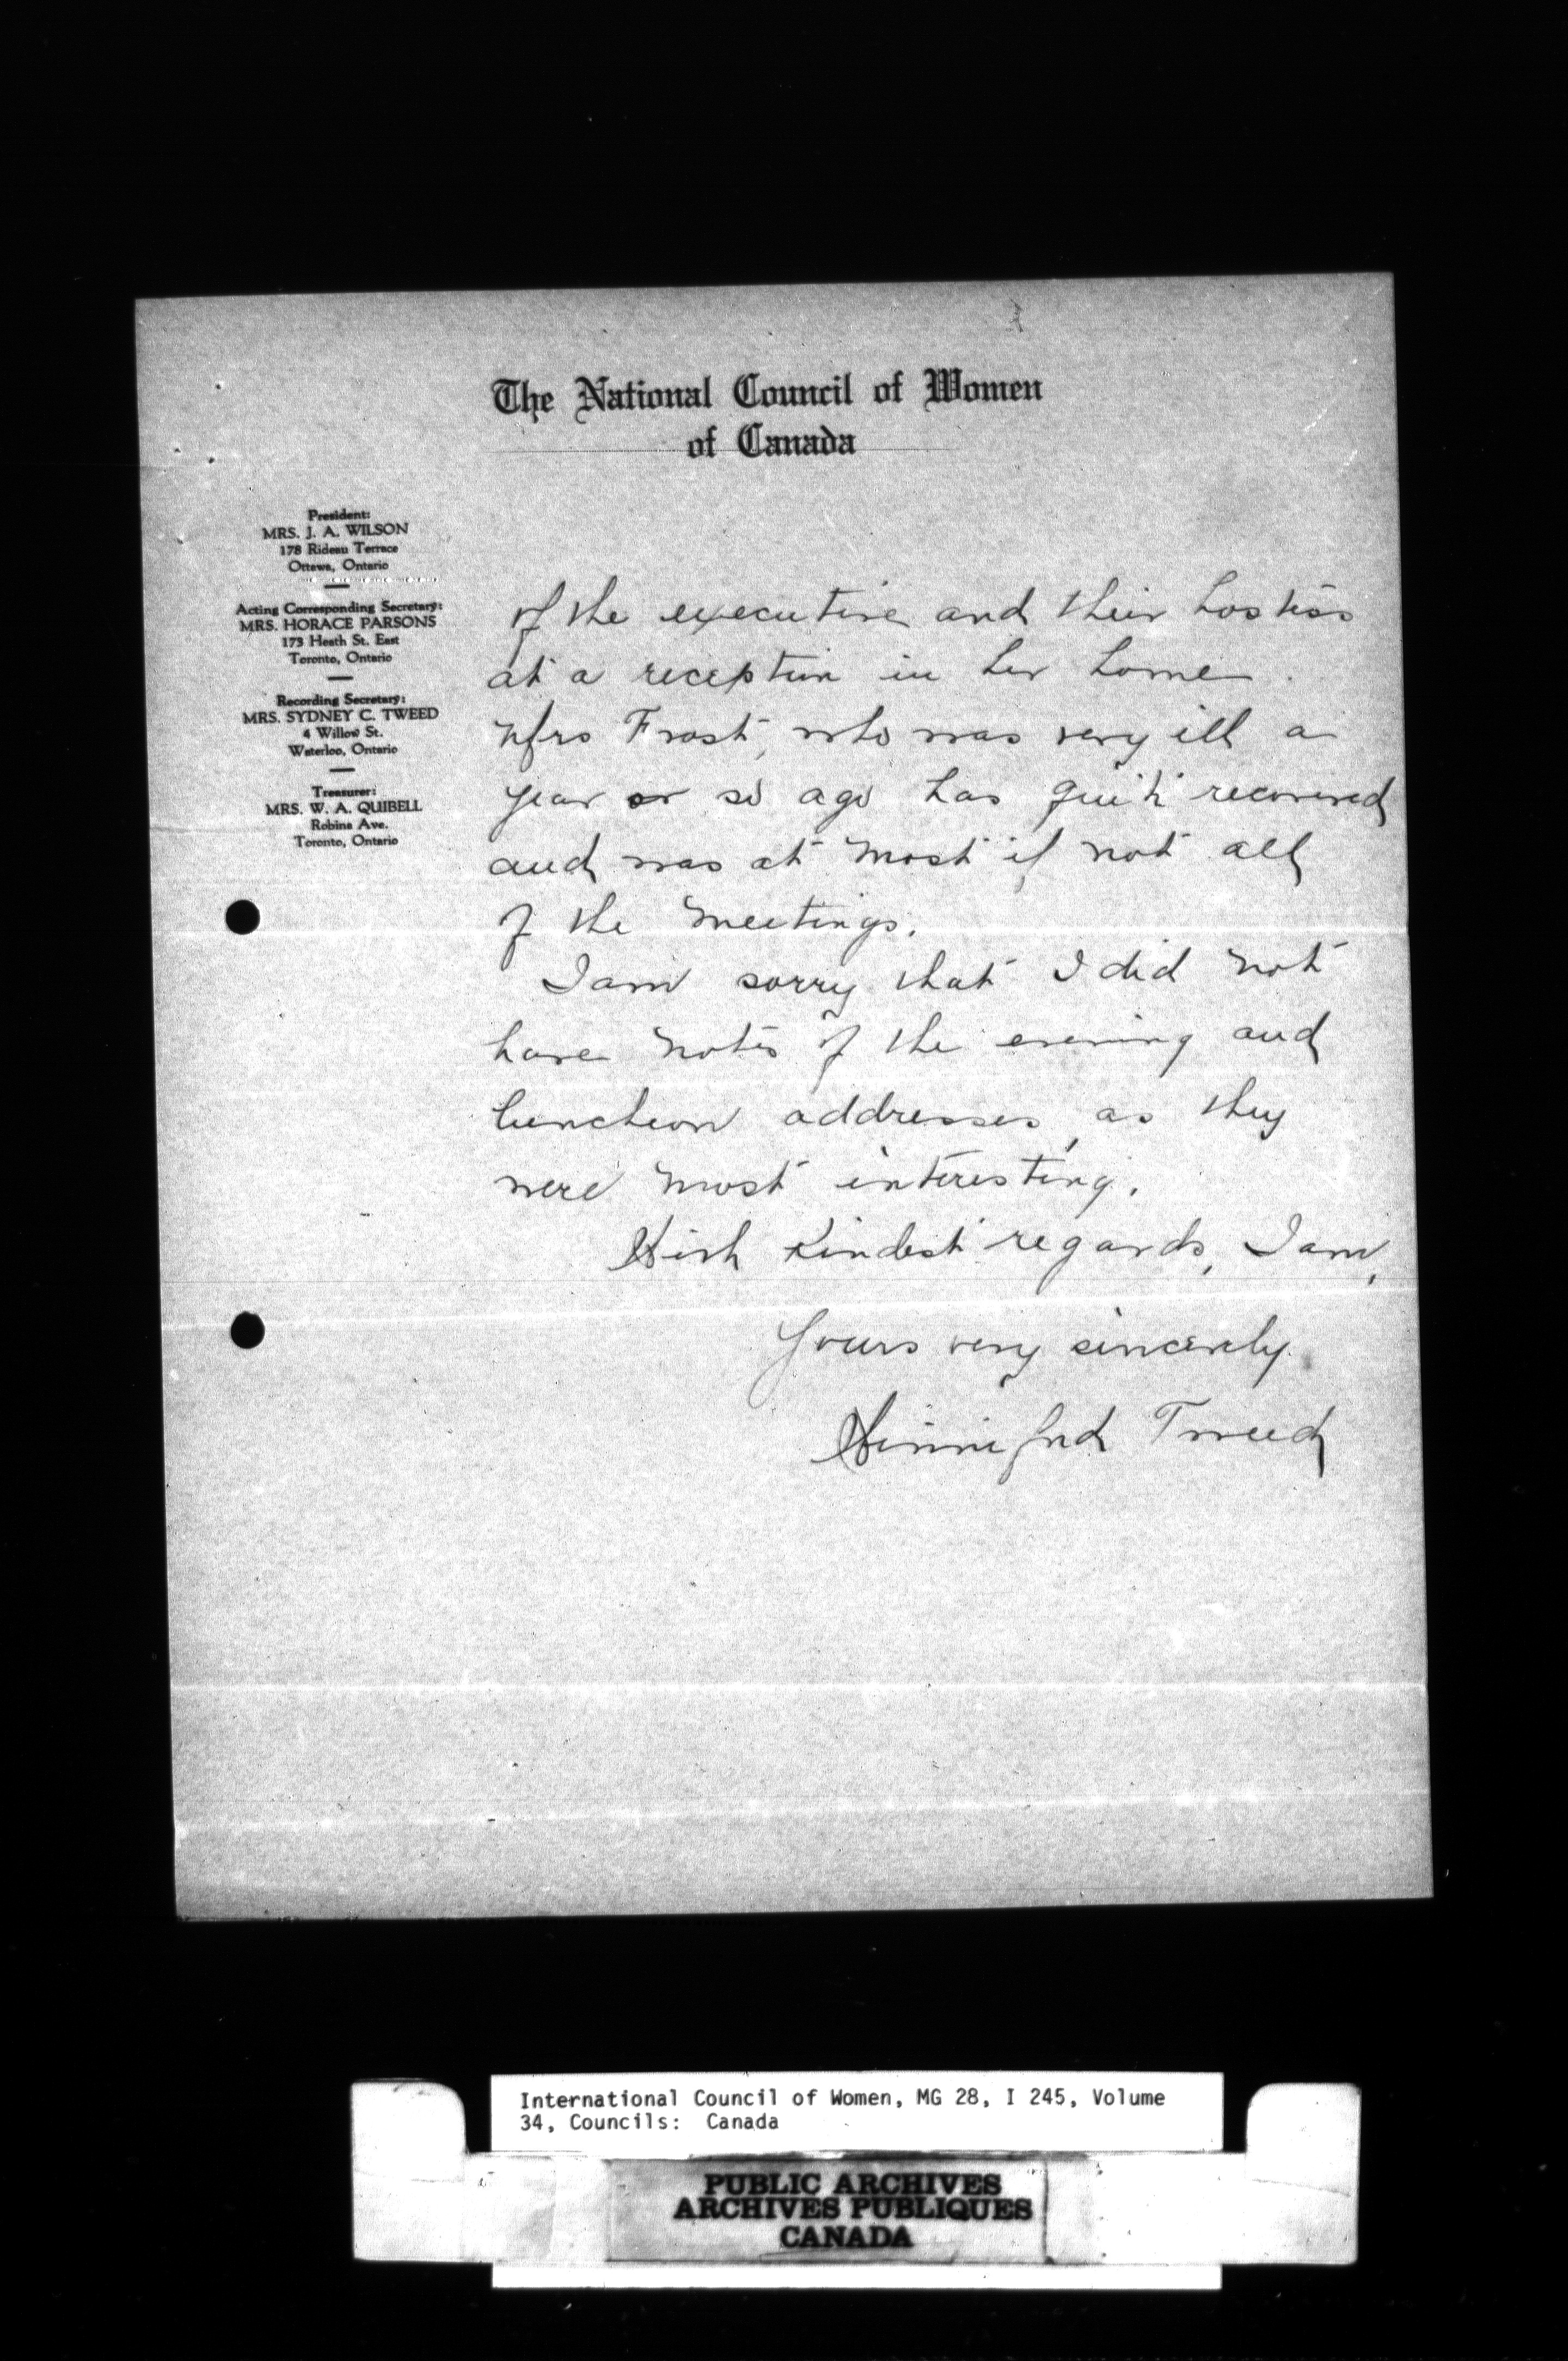 The National Council of Women
of Canada
President:
MRS. J. A. WILSON
178 Rideau Terrace
Ottawa, Ontario
Acting Corresponding Secretary:
MRS. HORACE PARSONS
173 Heath St. East
Toronto, Ontario
Recording Secretary:
MRS. SYDNEY C. TWEED
4 Willow St.
Waterloo, Ontario
Treasurer:
MRS. W. A. QUIBELL
Robina Ave.
Toronto, Ontario
of the executive and their hostess
at a reception in her home.
Mrs Frost, who was very ill a
year or so ago has quite recovered
and was at most if not all
of the meetings.
I am sorry that I did not
have notes of the evening and
luncheon addresses, as they
were most interesting.
With kindest regards, I am,
Yours very sincerely.
Winnifred Tweed
International Council of Women, MG 28, I 245, Volume
34, Councils: Canada
PUBLIC ARCHIVES
ARCHIVES PUBLIQUES
CANADA